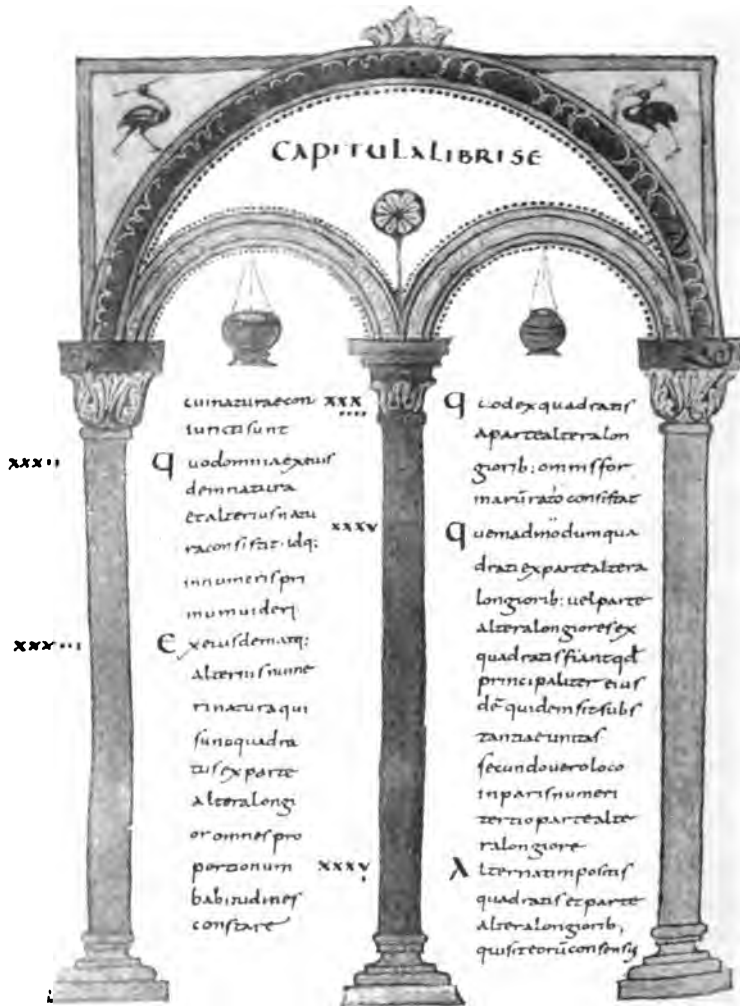 CAPITULA LIBRI SE
cui naturae con
iuncti sunt
xxxii Quod omnia ex eius
dem natura
et alterius natu
ra consistit · idq;
in numeris pri
mum uideri
xxxiii Ex eiusdem atq;
alterius nume
ri natura qui
sunt quadra
tus ex parte
altera longi
or omnes pro
portionum
habitudines
constare
xxxiiii Quod ex quadratis
a parte altera lon
giorib; omnis for
marū ratio consistat
xxxv Quemadmodum qua
drati ex parte altera
longiorib; uel parte
altera longiores ex
quadratis fiant qđ
principaliter eius
dē quidem sit subs
tantiae unitas
secundo uero loco
inparis numeri
tertio parte alte
ra longiore
xxxvi Alternatim positis
quadratis et parte
altera longiorib;
qui sit eorū consensus